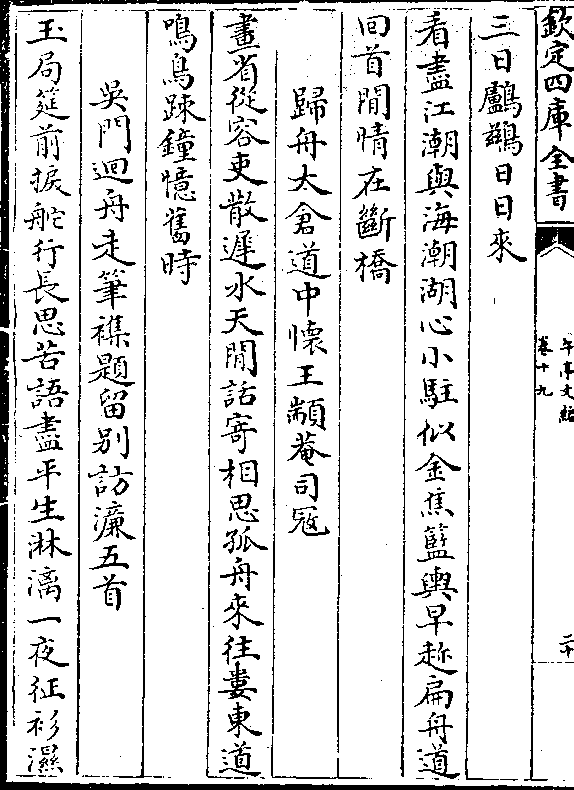 欽定四庫全書
午亭文編
卷十九
二十
三日鸕鷀日日來
看盡江潮與海潮湖心小駐似金焦籃輿早趂扁舟道
回首閒情在斷橋
歸舟太倉道中懷王顓菴司冦
畫省從容吏散遲水天閒話寄相思孤舟來往婁東道
鳴鳥踈鐘憶舊時
吳門迴舟走筆襍題留别訪濂五首
玉局筵前捩舵行長思苦語盡平生淋漓一夜征衫濕